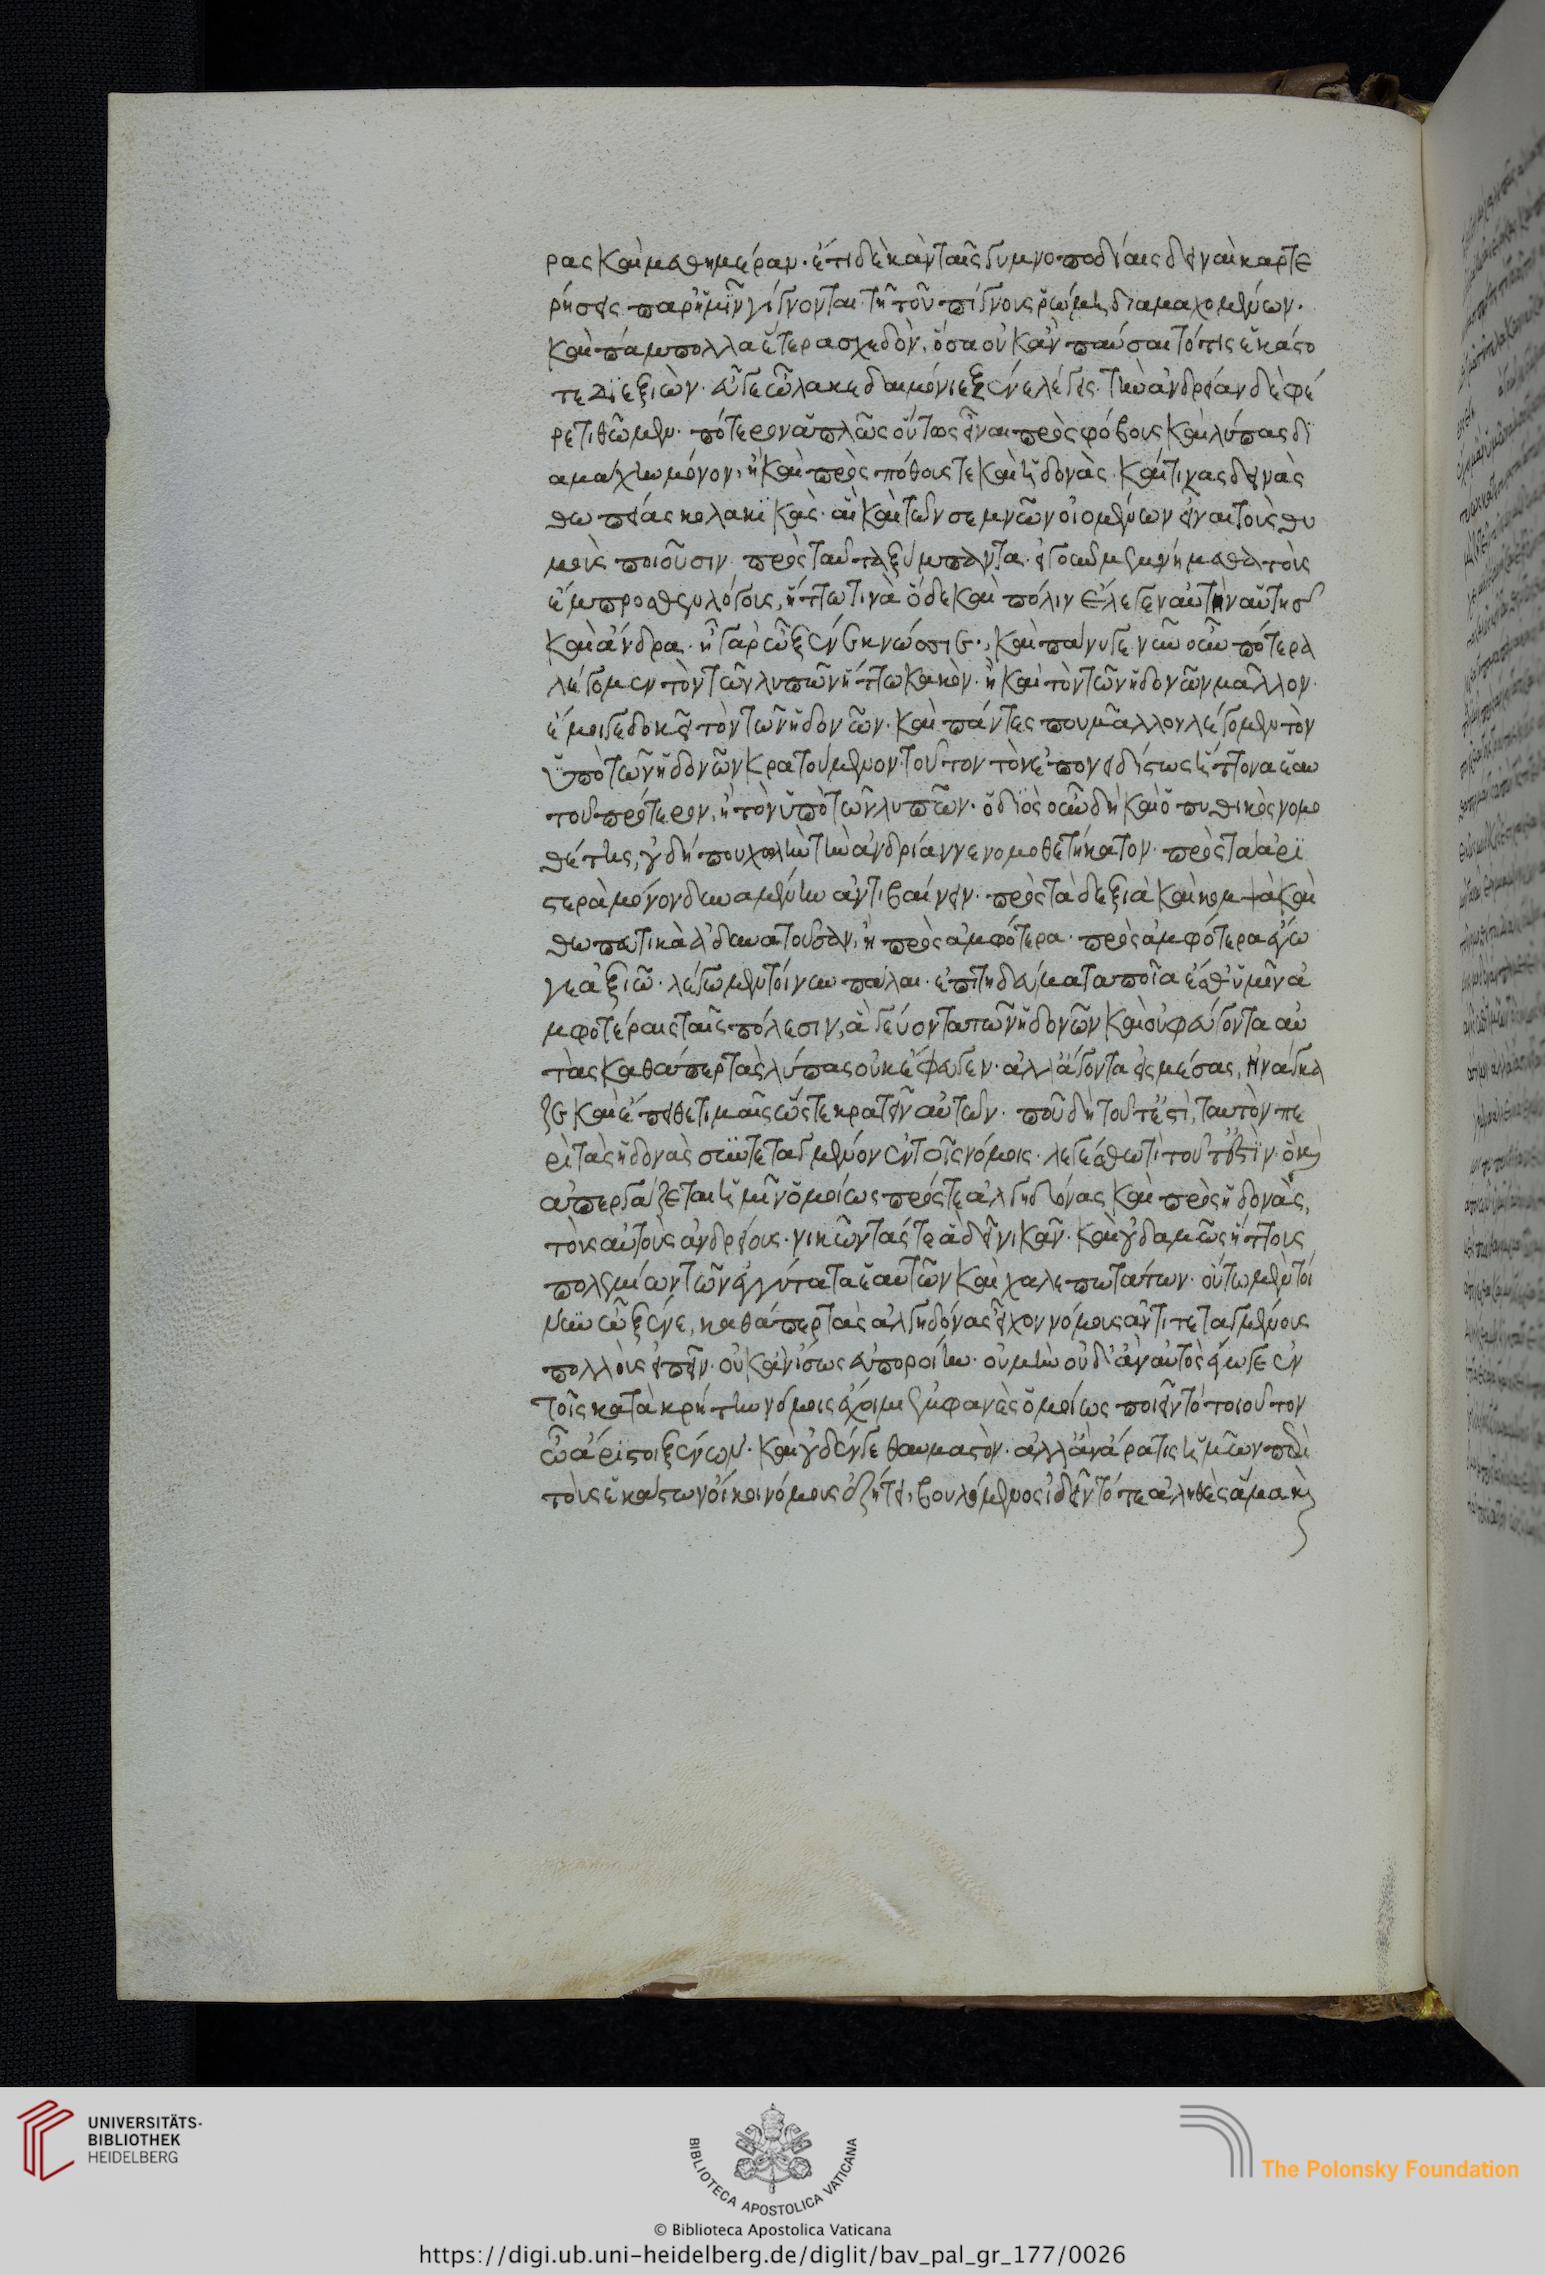 ρας καὶ μεθημέραν· ἔτι δὲ κἀν ταῖς γυμνοποδίαις δειναὶ καρτε
ρήσεις παρἡμῖν γίγνονται· τῆ τοῦ πίγνοις ῥώμη διαμαχομένων·
καὶ πάμπολλα ἕτερα σχεδὸν, ὅσα οὐκ ἂν παύσαιτό τις ἑκάστο
τε διεξιὼν· εὖ γε ὦ λακεδαιμόνιε ξένε λέγεις· τὴν ἀνδρείαν δὲ φέ
ρε τι θῶμεν· πότερον ἁπλῶς οὕτως εἶναι πρὸς φόβους καὶ λύπας δι
αμάχην μόνον, ἢ καὶ πρὸς πόθους τε καὶ ἡδονὰς· καί τινας δεινὰς
θωπείας κολακικὰς· αἳ καὶ τῶν σεμνῶν οἰομένων εἶναι τοὺς θυ
μοὺς ποιοῦσιν πρὸς ταῦτα ξύμπαντα· εἰ γοῦν μεμνήμεθα τοὺς
ἔμπροσθεν λόγοις, ἥττω τινὰ ὅδε καὶ πόλιν ἔλεγεν αὐτὴν αὑτῆς
καὶ ἄνδρα· ἦ γὰρ ὦ ξένε κνώσσιε·, καὶ πάνυ γε νῦν οὖν πότερα
λέγομεν τὸν τῶν λυπῶν ἥττω κακὸν· ἢ καὶ τὸν τῶν ἡδονῶν μᾶλλον·
ἔμοιγε δοκεῖ τὸν τῶν ἡδονῶν· καὶ πάντες που μᾶλλον λέγομεν τὸν
ὑπὸ τῶν ἡδονῶν κρατούμενον· τοῦτον τὸν ἐπονειδίστως ἥττονα ἑαυ
τοῦ πρότερον, ἢ τὸν ὑπὸ τῶν λυπῶν· ὁ διὸς οὖν δὴ καὶ ὁ πυθικὸς νομο
θέτης, οὐ δήπου χωλὴν τὴν ἀνδρίαν νενομοθετήκατον· πρὸς τἀρι
στερὰ μόνον δυναμένην ἀντιβαίνειν· πρὸς τὰ δεξιὰ καὶ κομψὰ καὶ
θωπευτικὰ ἀδυνατοῦσαν, ἢ πρὸς ἀμφότερα· πρὸς ἀμφότερα ἔγω
γε ἀξιῶ· λέγωμεν τοίνυν πάλαι· ἐπιτηδεύματα ποῖα ἔσθ' ὑμῖν ἀ
μφοτέραις ταῖς πόλεσιν, ἃ γεύοντα τῶν ἡδονῶν καὶ οὐ φεύγοντα αὐ
τὰς καθάπερ τὰς λύπας οὐκ ἔφευγεν· ἀλλ' ἄγοντα εἰς μέσας, ἠνάγκα
ζε καὶ ἔπειθε τιμαῖς ὥστε κρατεῖν αὐτῶν· ποῦ δὴ τοῦτ' ἔστὶ, ταυτὸν πε
ρὶ τὰς ἡδονὰς συντεταγμένον ἐν τοῖς νόμοις· λεγέσθω τὶ τοῦτ' ἐστὶν· ὃ καὶ
ἀπεργάζεται ἡμῖν ὁμοίως πρός τε ἀλγηδόνας καὶ πρὸς ἡδονὰς,
τοὺς αὐτοὺς ἀνδρείους· νικῶντάς τε ἃ δεῖ νικᾶν· καὶ οὐδαμῶς ἥττους
πολεμίων τῶν ἐγγύτατα ἑαυτῶν καὶ χαλεπωτάτων· οὕτω μὲν τοί
νυν ὦ ξένε, καθάπερ τὰς ἀλγηδόνας εἶχον νόμοις ἀντιτεταγμένοις
πολλοὺς εἰπεῖν· οὐκ ἂν ἴσως εὐποροίην· οὐ μὴν οὐδ' ἂν αὐτὸς ἔγωγε ἐν
τοῖς κατὰ κρήτην νόμοις ἔχοιμι ἐμφανὲς ὁμοίως ποιεῖν τὸ τοιοῦτον
ὦ ἄριστοι ξένων· καὶ οὐδέν γε θαυμαστὸν· ἀλλ' ἂν ἄρα τις ἡμῶν περὶ
τοὺς ἑκάστων οἴκοι νόμους ἐζήτει, βουλόμενος ἰδεῖν τό τε ἀληθὲς ἅμα καὶ